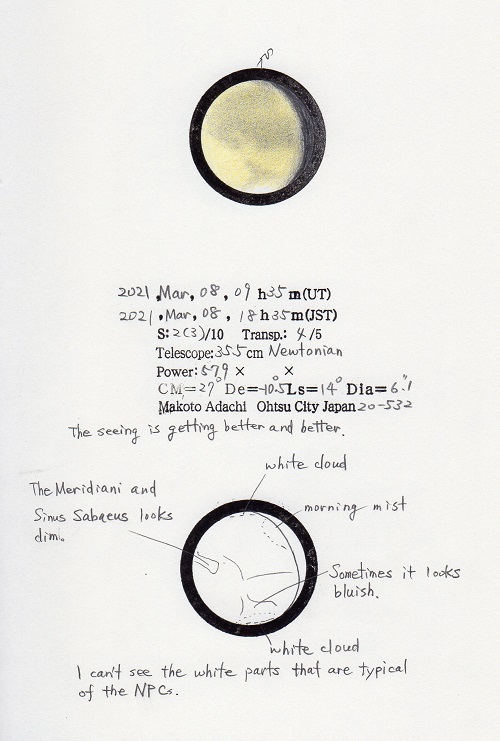 2021, Mar, 08, 09 h 35 m (UT)
2021, Mar, 08, 18 h 35 m (JST)
S: 2(3)/10 Transp.: 4/5
Telescope: 355 cm Newtonian
Power: 579 × ×
CM=27° De=-10.5° Ls=14° Dia=6.1"
Makoto Adachi Ohtsu City Japan 20-532
The seeing is getting better and better.
white cloud
The Meridiani and
Sinus Sabaeus looks
dim.
morning mist
Sometimes it looks
bluish.
white cloud
I can't see the white parts that are typical
of the NPCs.